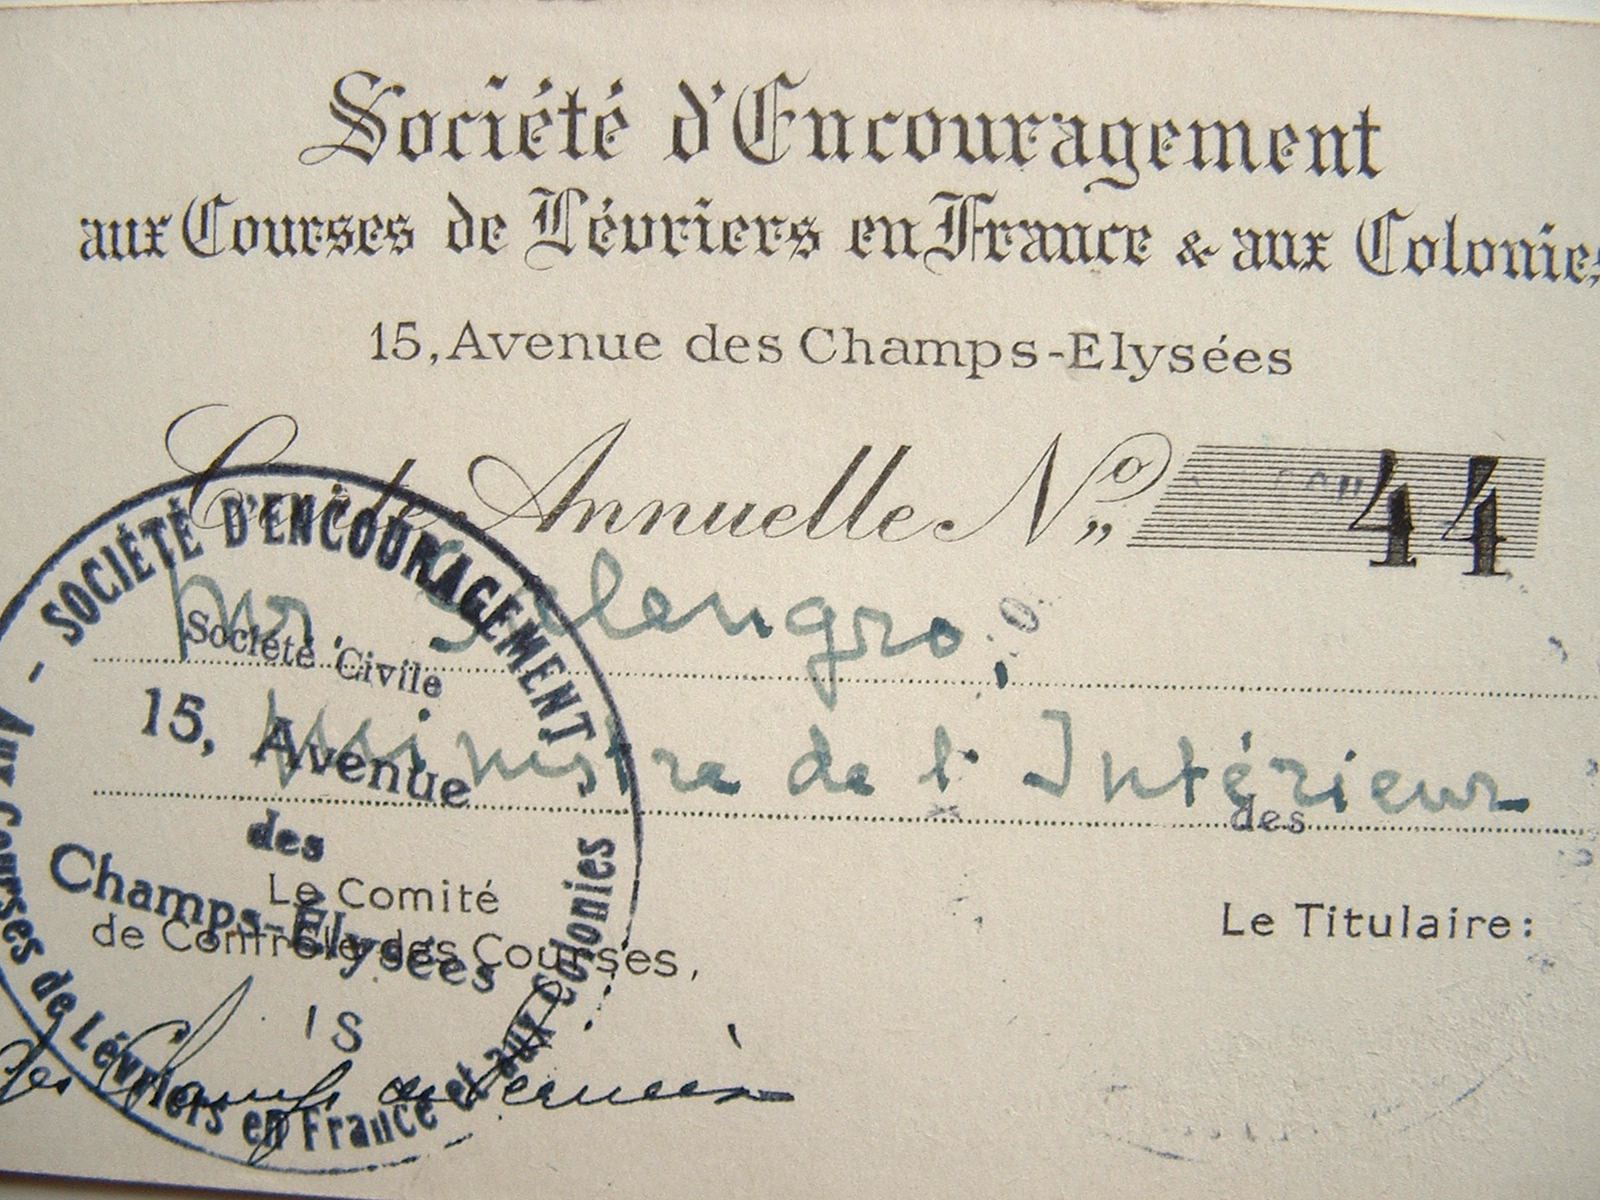 Société d'Encouragement
aux Courses de Lévriers en France & aux Colonies
15, Avenue des Champs-Elysées
Carte Annuelle No 44
Mr. Salengro,
Ministre de l'Intérieur
des
Le Comité
de Contrôle des Courses,
Le Titulaire:
- SOCIÉTÉ D'ENCOURAGEMENT
Aux Courses de Lévriers en France et aux Colonies
Société Civile
15, Avenue
des
Champs-Élysées